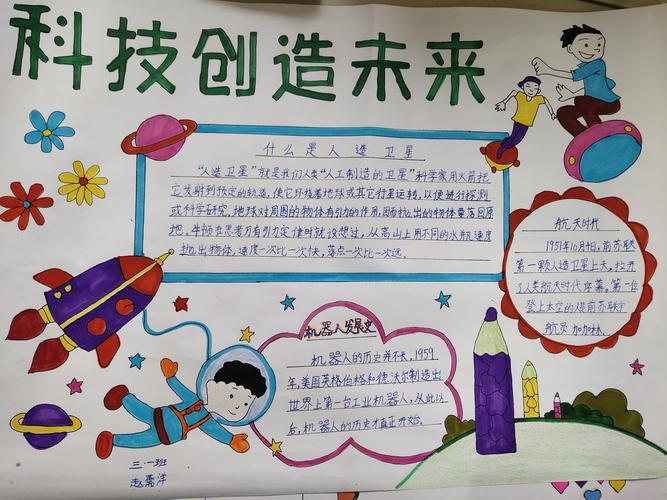 科技创造未来
什么是人造卫星
“人造卫星”就是我们人类“人工制造的卫星”科学家用火箭把
它发射到预定的轨道,使它环绕着地球或其它行星运转,以便进行探测
或科学研究,地球对周围的物体有引力的作用,因而抛出的物体要落回原
地,牛顿在思考万有引力定律时就设想过,从高山上用不同的水平速度
抛出物体,速度一次比一次快,落点一次比一次远.
航天时代
1951年10月4日,前苏联
第一颗人造卫星上天,拉开
了人类航天时代序幕,第一位
登上太空的是前苏联宇
航员加加林.
机器人发展史
机器人的历史并不长,1959
年,美国英格伯格和德沃尔制造出
世界上第一台工业机器人,从此以
后,机器人的历史才真正开始.
三.一班
赵嘉洋